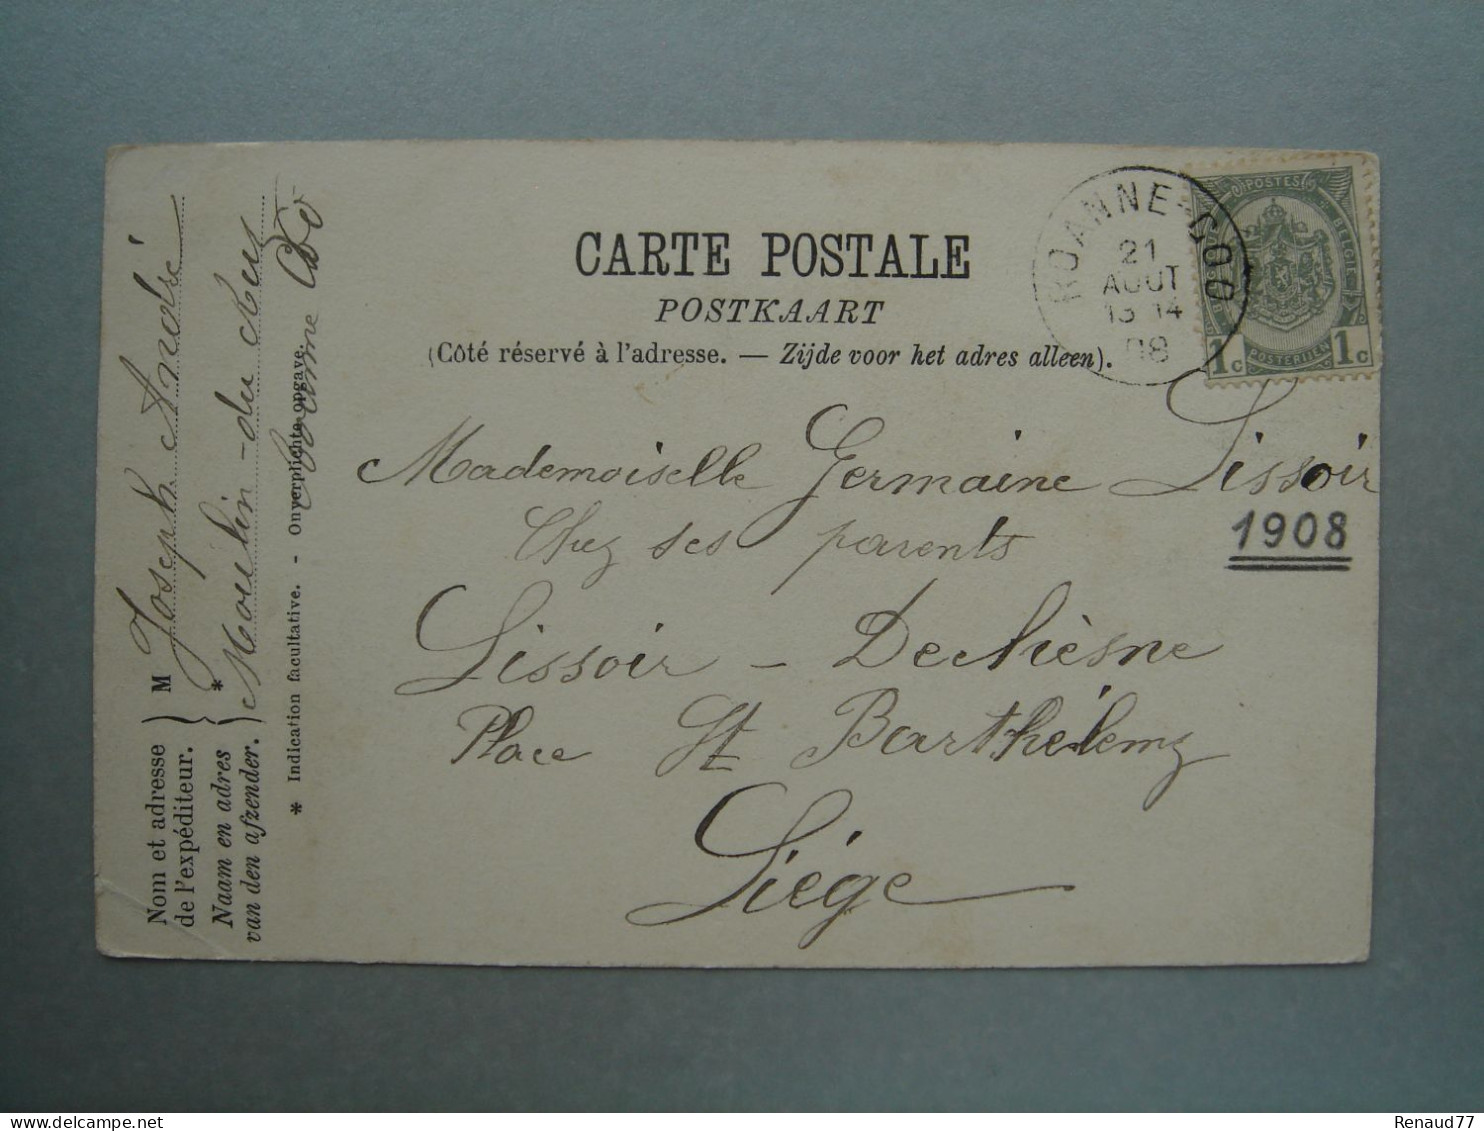 CARTE POSTALE
POSTKAART
(Côté réservé à l'adresse. — Zijde voor het adres alleen).
ROANNE-COO
21
AOUT
13 14
08
POSTES
BELGIE
1c POSTERIJEN 1c
Mademoiselle Germaine Lissoir
1908
Chez ses parents
Lissoir - Dechèsne
Place St Barthélemy
Liége
Nom et adresse
de l'expéditeur.
Naam en adres
van den afzender.
M Joseph André
* Moulin-du Ruy
* Indication facultative. - Onverplichte opgave.
Roanne Coo
Renaud77